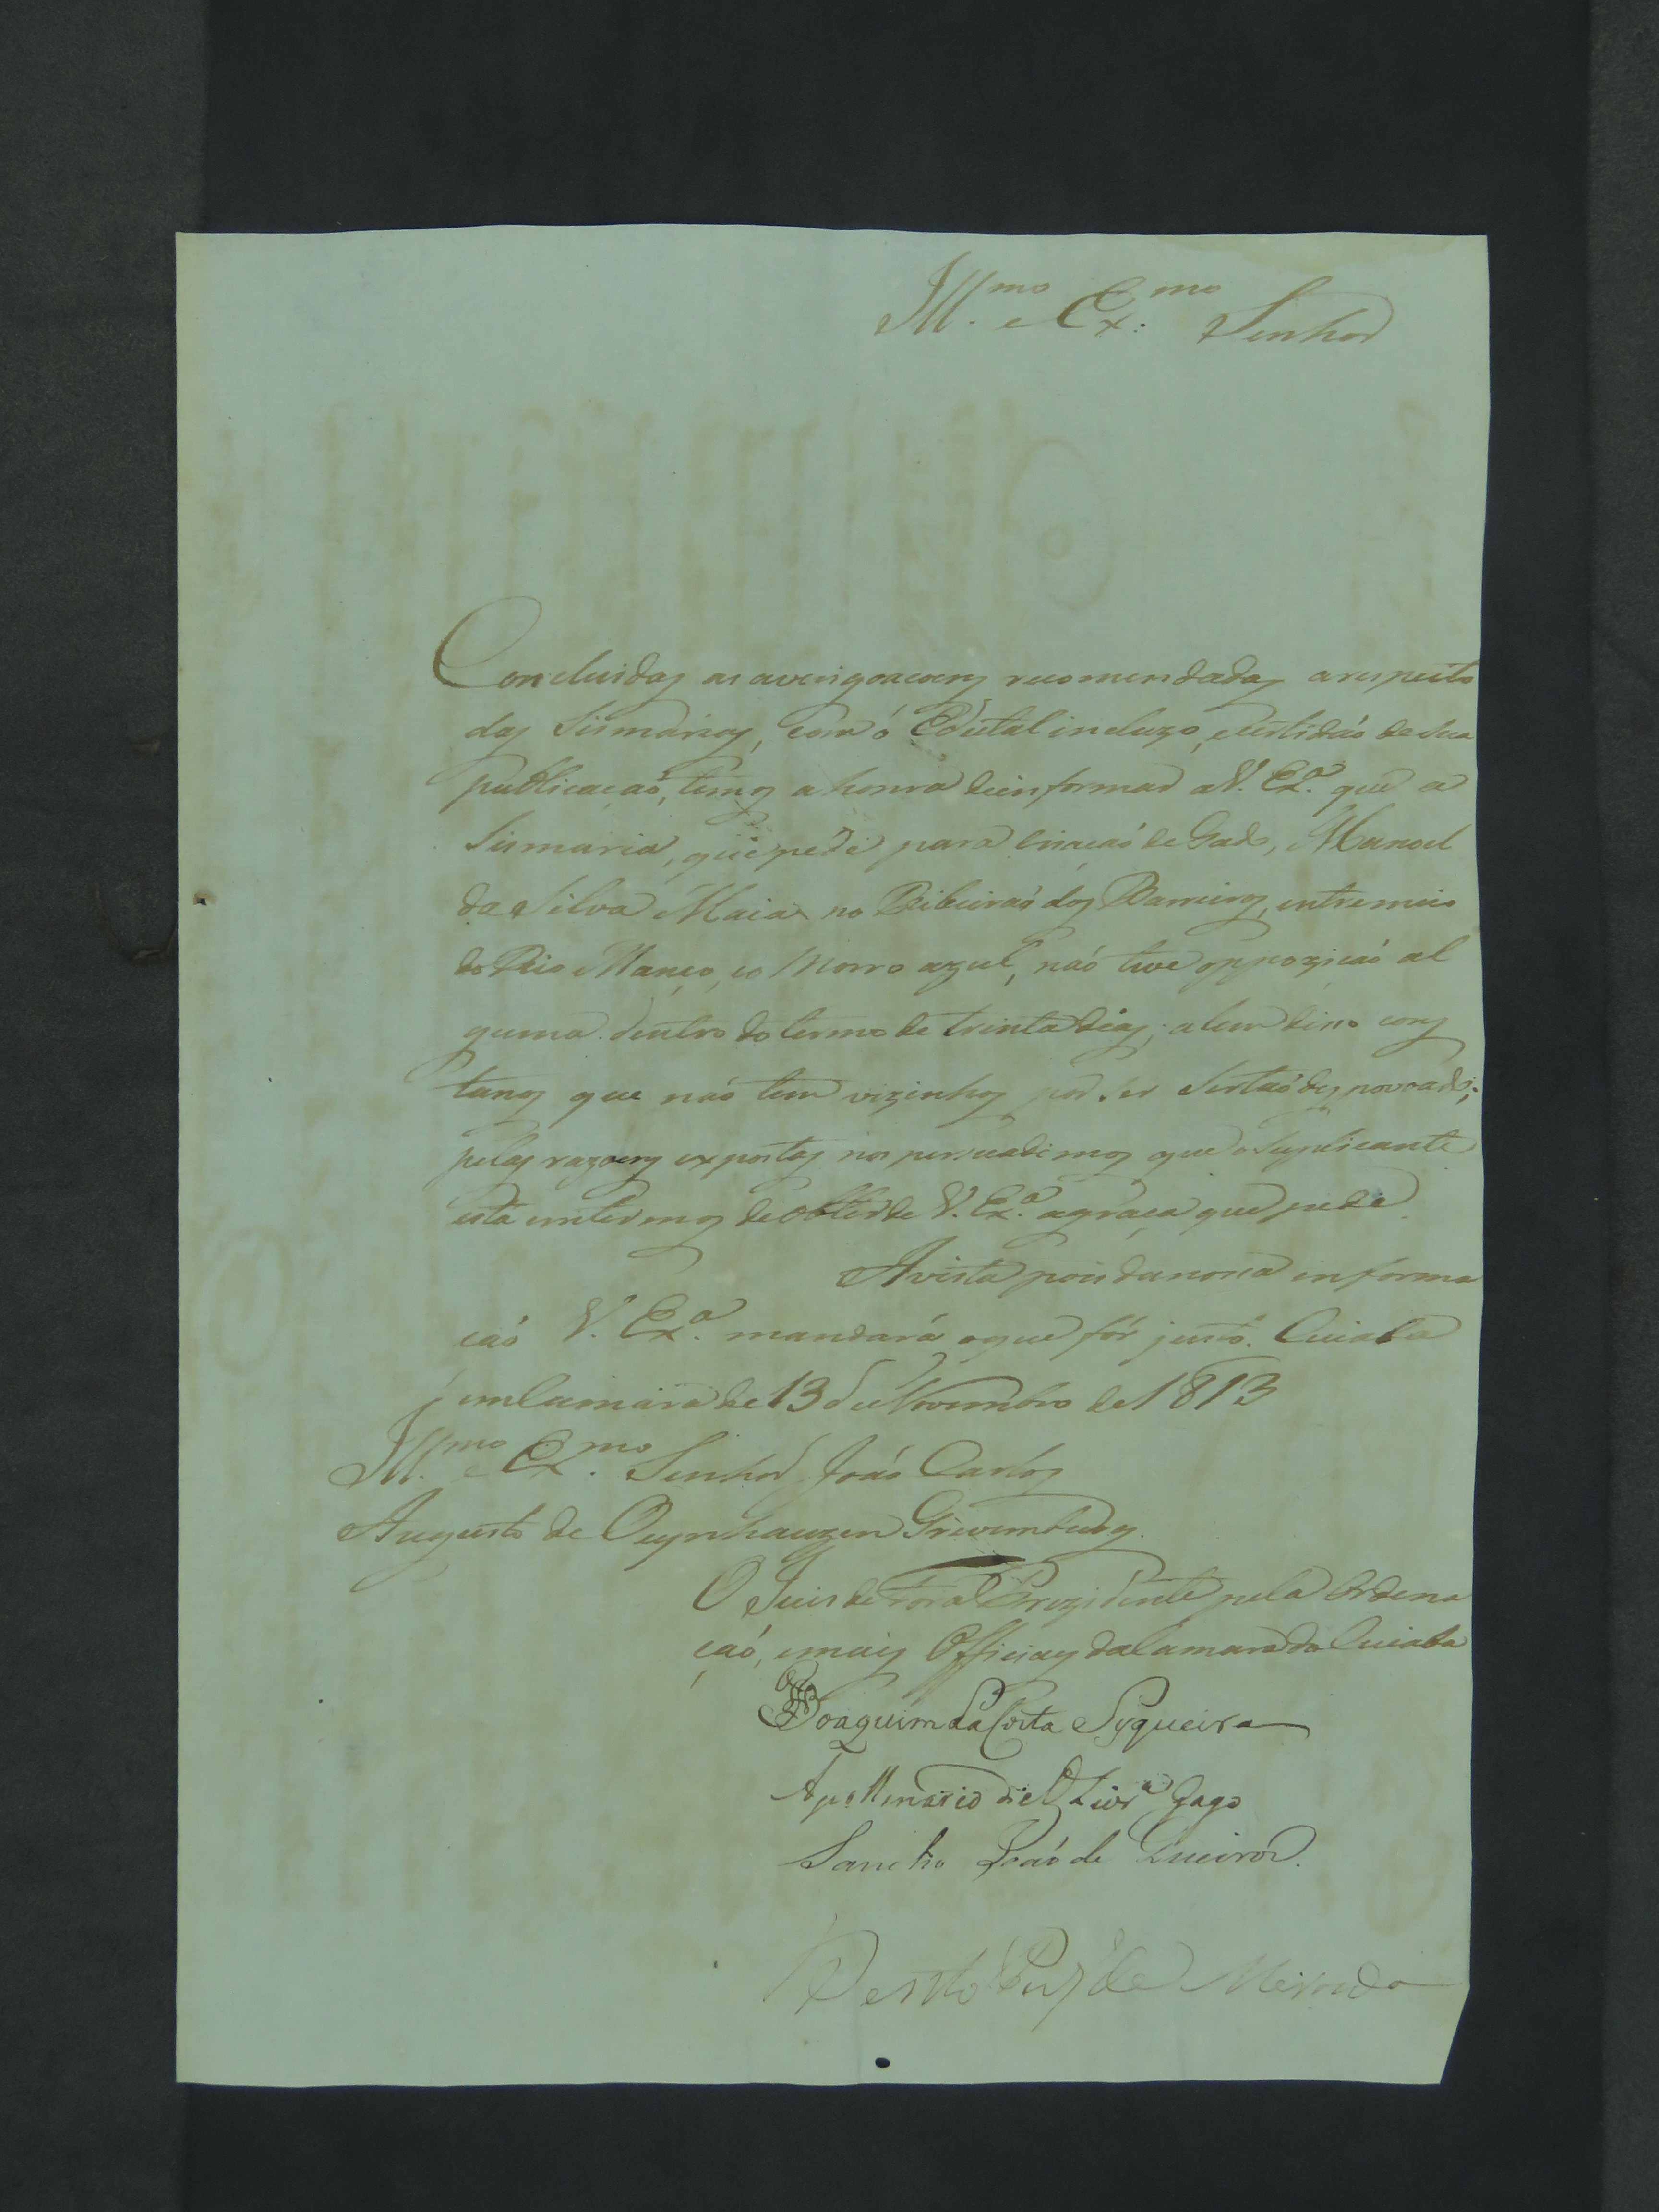 Ill.mo e Ex.mo Senhor
Concluidas as averigoacoens recomendadas arespeito
das Sismarias, com ó Edital incluzo, ecirtidaó de Sua
publicacaó, temos ahonra deinformar aV. Ex.a que a
Sismaria, que pede para criacaó de Gado, Manoel
da Silva Maia no Ribeiraó dos Barreiros, entremeio
do Rio Manço, eo Morro azul, naó teve oppozicaó al
guma dentro do termo de trinta dias; alem diso cons
tanos que naó tem vizinhos por ser Sertaó despovoado;
pelas razoens expostas nos persuadimos que oSuplicante
está emtermos deobter de V. Ex.a agraça que pede
Avista pois danossa informa
caó V. Ex.a mandará oque fór justo. Cuiaba
emCamara de 13 de Novembro de 1813
Ill.mo e Ex.mo Senhor Joaó Carlos
Augusto de Oeynhauzen Grevemburg.
O Juis de Fora Prezidente pela Ordena
çaó, emais Officiaes daCamara do Cuiaba
Joaquim da Costa Syqueira
Apollinario de Olivr.a Gago
Sancho Joaó de Queiros.
de Miranda